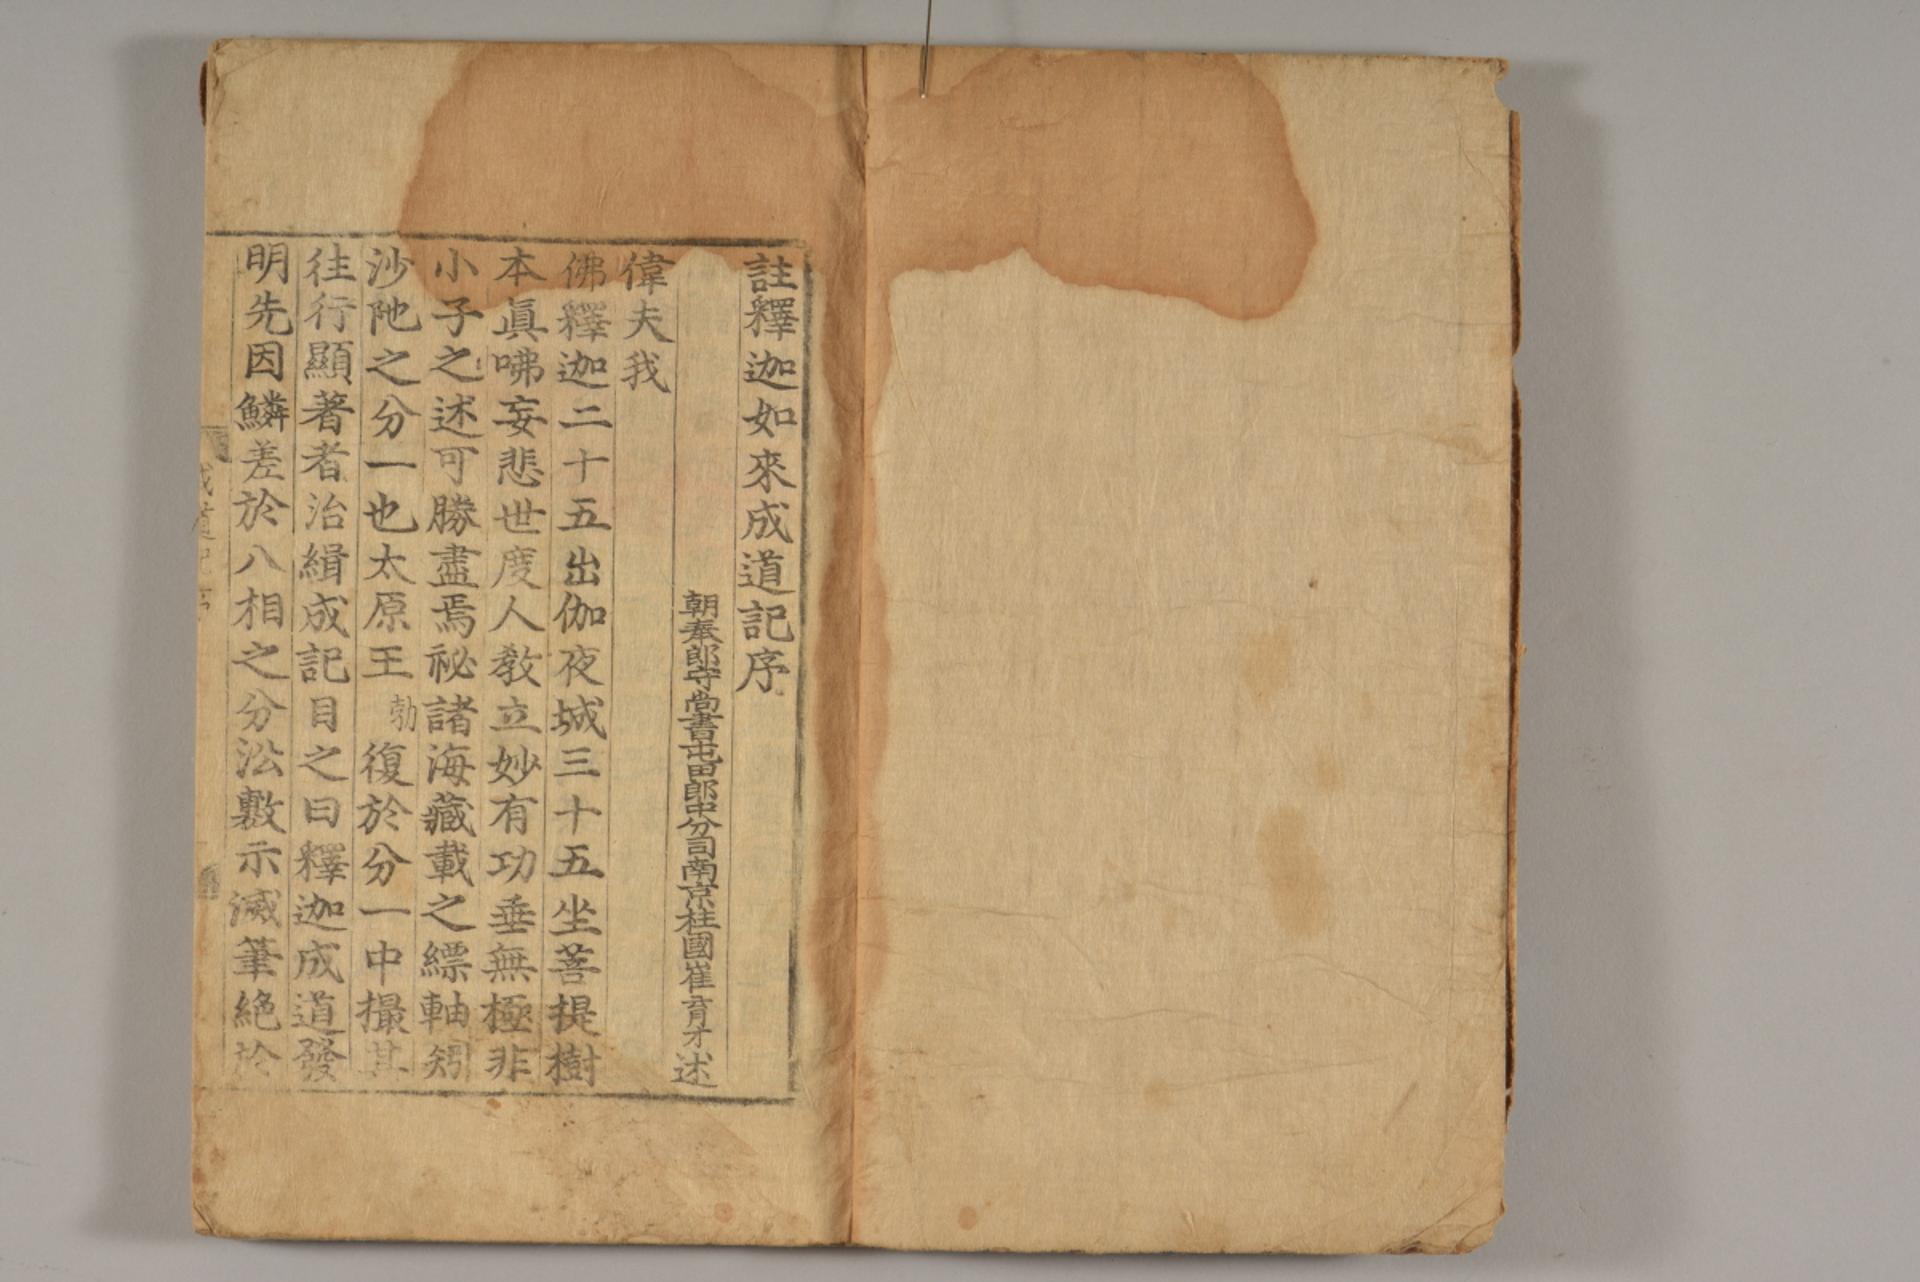 註釋迦如來成道記序
朝奉郎守尚書屯田郎中分司南京柱國崔育才述
偉夫我
佛釋迦二十五出伽夜城三十五坐菩提樹
本眞咈妄悲世度人敎立妙有功垂無極非
小子之述可勝盡焉祕諸海藏載之縹軸矧
沙陁之分一也太原王勃復於分一中撮其
往行顯著者治緝成記目之曰釋迦成道發
明先因鱗差於八相之分㳂敷示滅筆絶於
成道記序